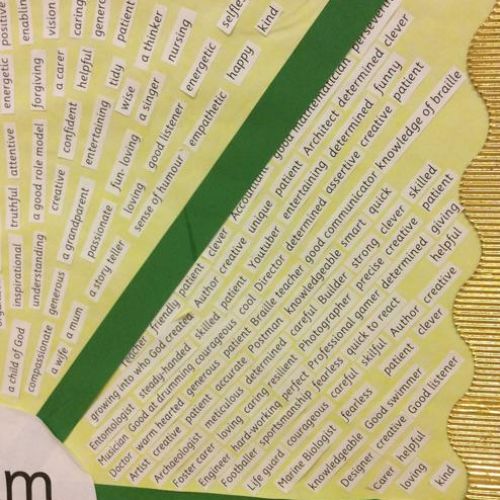 positive
energetic
enabling
forgiving
vision
a carer
caring
helpful
tidy
patient
a thinker
wise
nursing
a singer
energetic
selfless
happy
kind
truthful attentive
a good role model
confident
entertaining
creative
fun-loving
good listener
empathetic
inspirational
understanding
a grandparent
passionate
loving
sense of humour
a child of God
compassionate
generous
a story teller
a wife a mum
friendly patient clever Accountant good mathematician persevering
growing into who God created Author creative unique patient Architect determined clever
Entomologist steady-handed skilled patient Youtuber entertaining determined funny
Musician Good at drumming courageous cool Director determined assertive creative patient
Doctor warm hearted generous patient Braille teacher good communicator knowledge of braille
Artist creative patient accurate Postman knowledgeable smart quick
Archaeologist meticulous determined careful Builder strong clever skilled
Foster carer loving caring resilient Photographer precise creative patient
Engineer hard-working perfect Professional gamer determined giving
Footballer sportsmanship fearless quick to react helpful
Life guard courageous careful skilful Author creative
Marine Biologist fearless patient clever
knowledgeable Good swimmer
Designer creative Good listener
carer helpful
loving kind
m